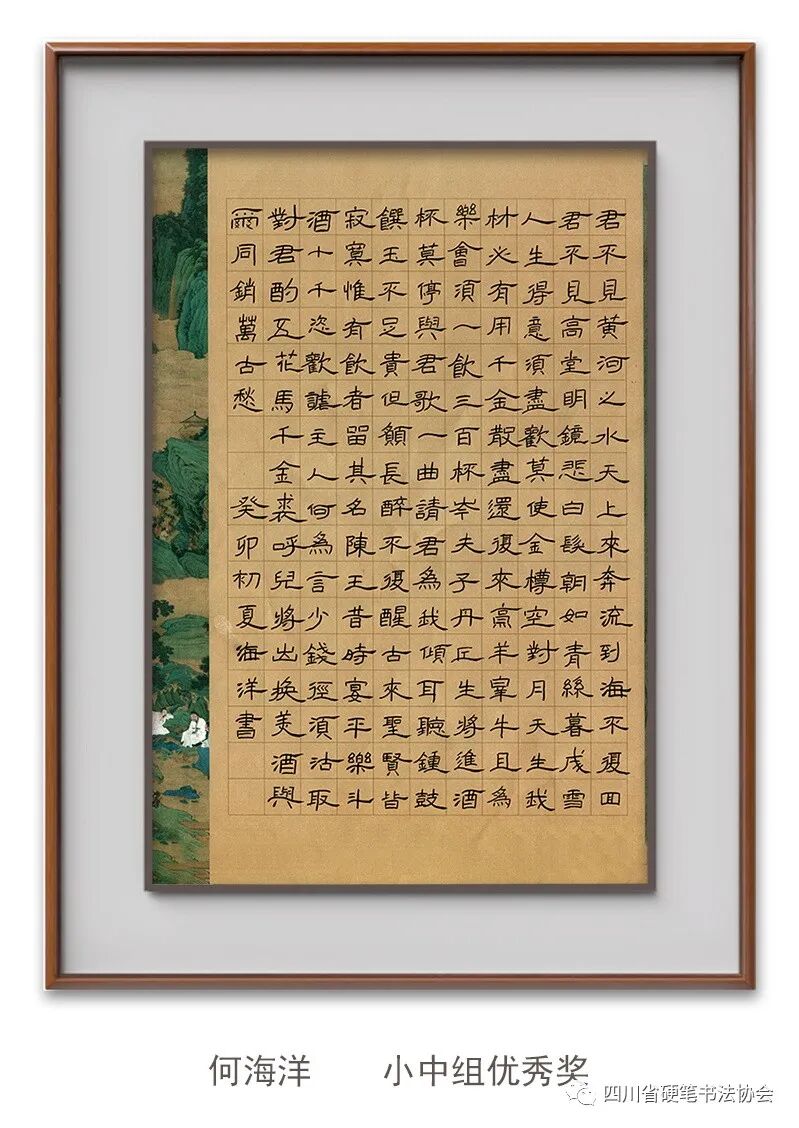 君不見黃河之水天上來奔流到海不復回
君不見高堂明鏡悲白髮朝如青絲暮成雪
人生得意須盡歡莫使金樽空對月天生我
材必有用千金散盡還復來烹羊宰牛且為
樂會須一飲三百杯岑夫子丹丘生將進酒
杯莫停與君歌一曲請君為我傾耳聽鍾鼓
饌玉不足貴但願長醉不復醒古來聖賢皆
寂寞惟有飲者留其名陳王昔時宴平樂斗
酒十千恣歡謔主人何為言少錢徑須沽取
對君酌五花馬千金裘呼兒將出換美酒與
爾同銷萬古愁 癸卯初夏海洋書
何海洋 小中组优秀奖
四川省硬笔书法协会